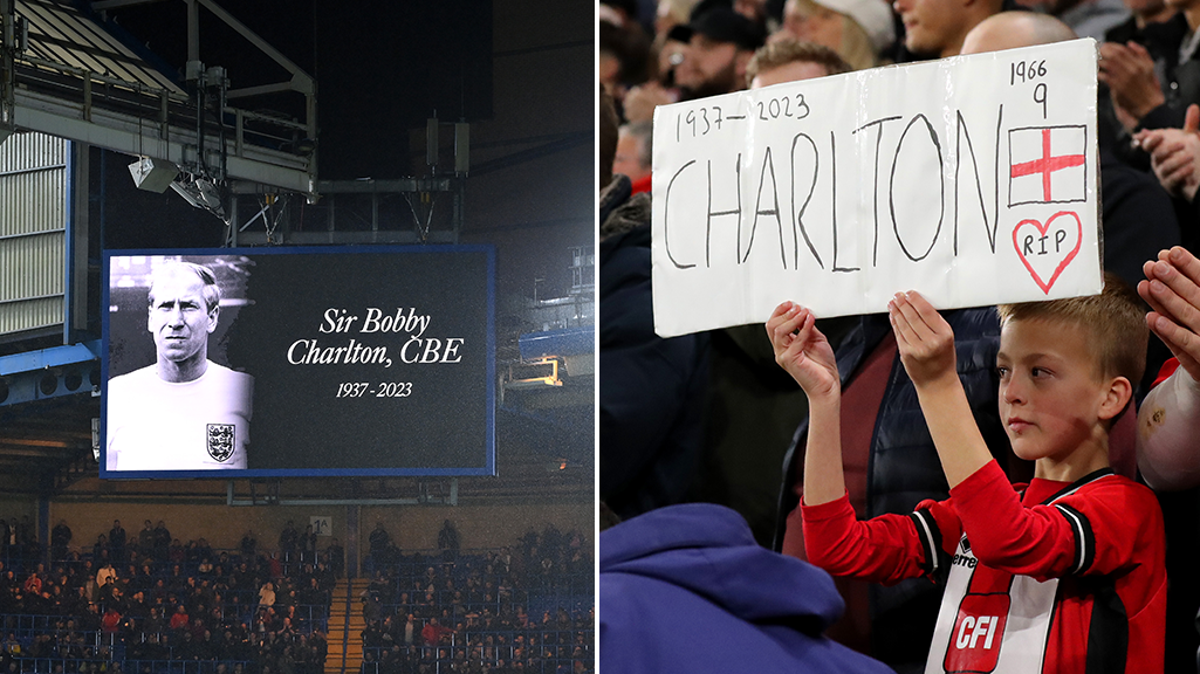 Sir Bobby
Charlton, CBE
1937 - 2023
1A
1937 - 2023
CHARLTON
1966
9
RIP
CFI